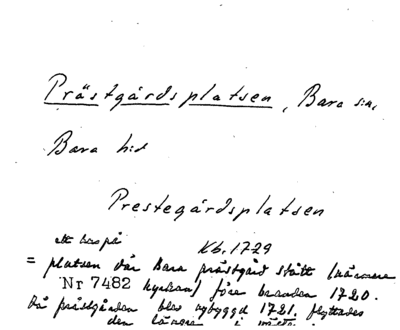 Prästgårdsplatsen, Bara sn,
Bara hd
Prestegårdsplatsen
Kb. 1729
= platsen där Bara prästgård stått (närmare
Nr 7482 kyrkan) före branden 1720.
Då prästgården blev nybyggd 1721, flyttades
den längre